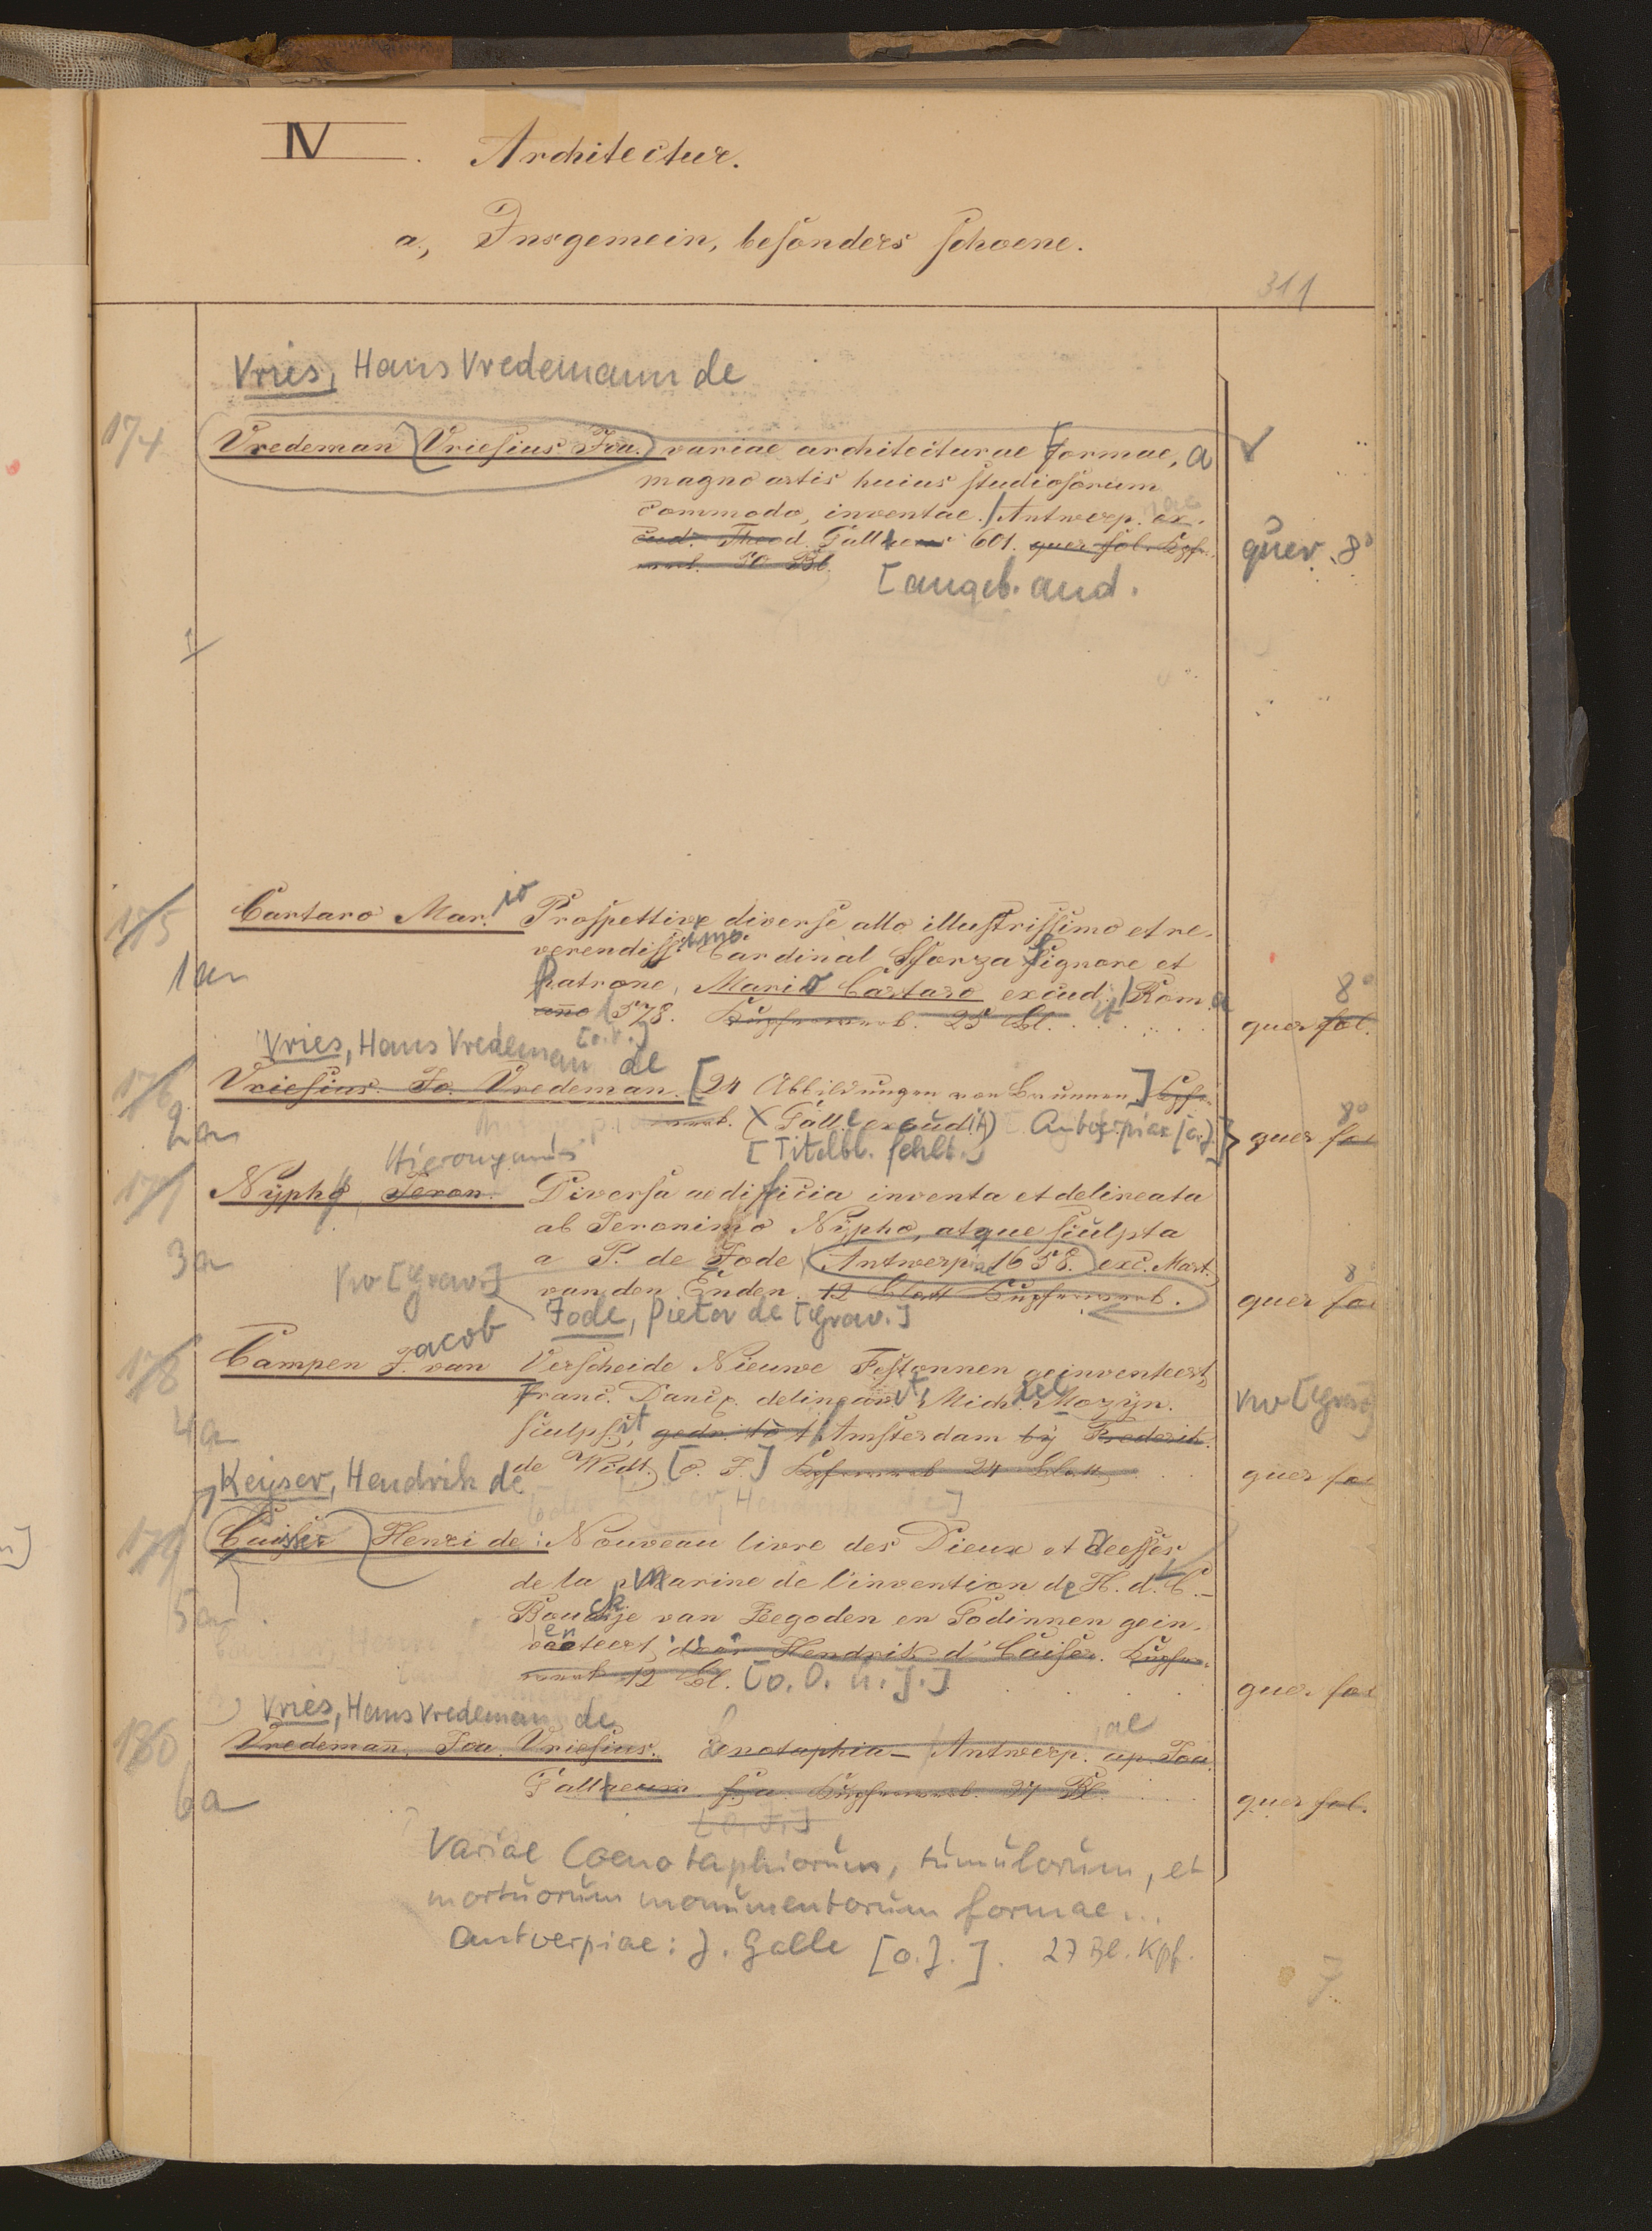 IV. Architectur.
a., Insgemein, besonders schoene.
311
Vries, Hans Vredemann de
174 Vredeman Vriesius Joa. variae architecturae formae, a
magno artis huius studiosorum
commodo, inventae. / Antwerp. ex.
cud. Theod. Gallaeus 601. quer fol. Kupfr.
werk. 50 Bl.
quer 8°
[angeb. and.
175 Cartaro Mar.io Prospettive diverse allo illustrissimo et re-
verendiss.imo Cardinal Sforza Signore et
1an
patrone, Mario Cartaro excud. / Roma
8°
ano 578. Kupferwerk. 25 Bl.
quer fol.
Vries, Hans Vredeman de
176 Vriesius. Jo. Vredeman. [24 Abbildungen von Brunnen] Kpfr.
werk. (X Galle excud(it) Antverpiae [o.J.]
8°
quer fol
2an
[Titelbl. fehlt.]
Hieronymus
177 Nypho, Jeron. Diversa aedificia inventa et delineata
ab Jeronimo Nypho, atque sculpta
3a
a P. de Jode Antwerpiae 1658. exc. Mart.
vw [Grav.]
van den Enden. 12 Blatt Kupferwerk.
8°
quer fol
Jode, Pieter de [Grav.]
178 Campen Jacob van Verscheide Nieuwe Festonnen geinventeert
Franc. Danckr. delineavit, Michael Mozyn.
vw [Grav]
4a
sculpsit, gedr. tot Amsterdam by Frederik
de Widt, [o. J.] Kupferwerk 24 Blatt
quer fol
Keyser, Hendrik de
179 Caisser Henri de: Nouveau livre des Dieux et Deesses
de la Marine de l'invention de H. d. C. -
5a
Bouckje van Zeegoden en Godinnen gein-
venteert, door Hendrik d' Caiser. Kupfer-
werk 12 Bl. [o. O. u. J.]
quer fol
Vries, Hans Vredeman de
180 Vredeman, Joa. Vriesius. Cenotaphia - Antwerp.iae ap. Joa.
Gallaeum. s. a. Kupferwerk. 27 Bl.
6a
quer fol.
[o. J.]
Variae Coenotaphiorum, tumulorum, et
mortuorum monumentorum formae...
Antverpiae: J. Galle [o.J.]. 27 Bl. Kpf.
7